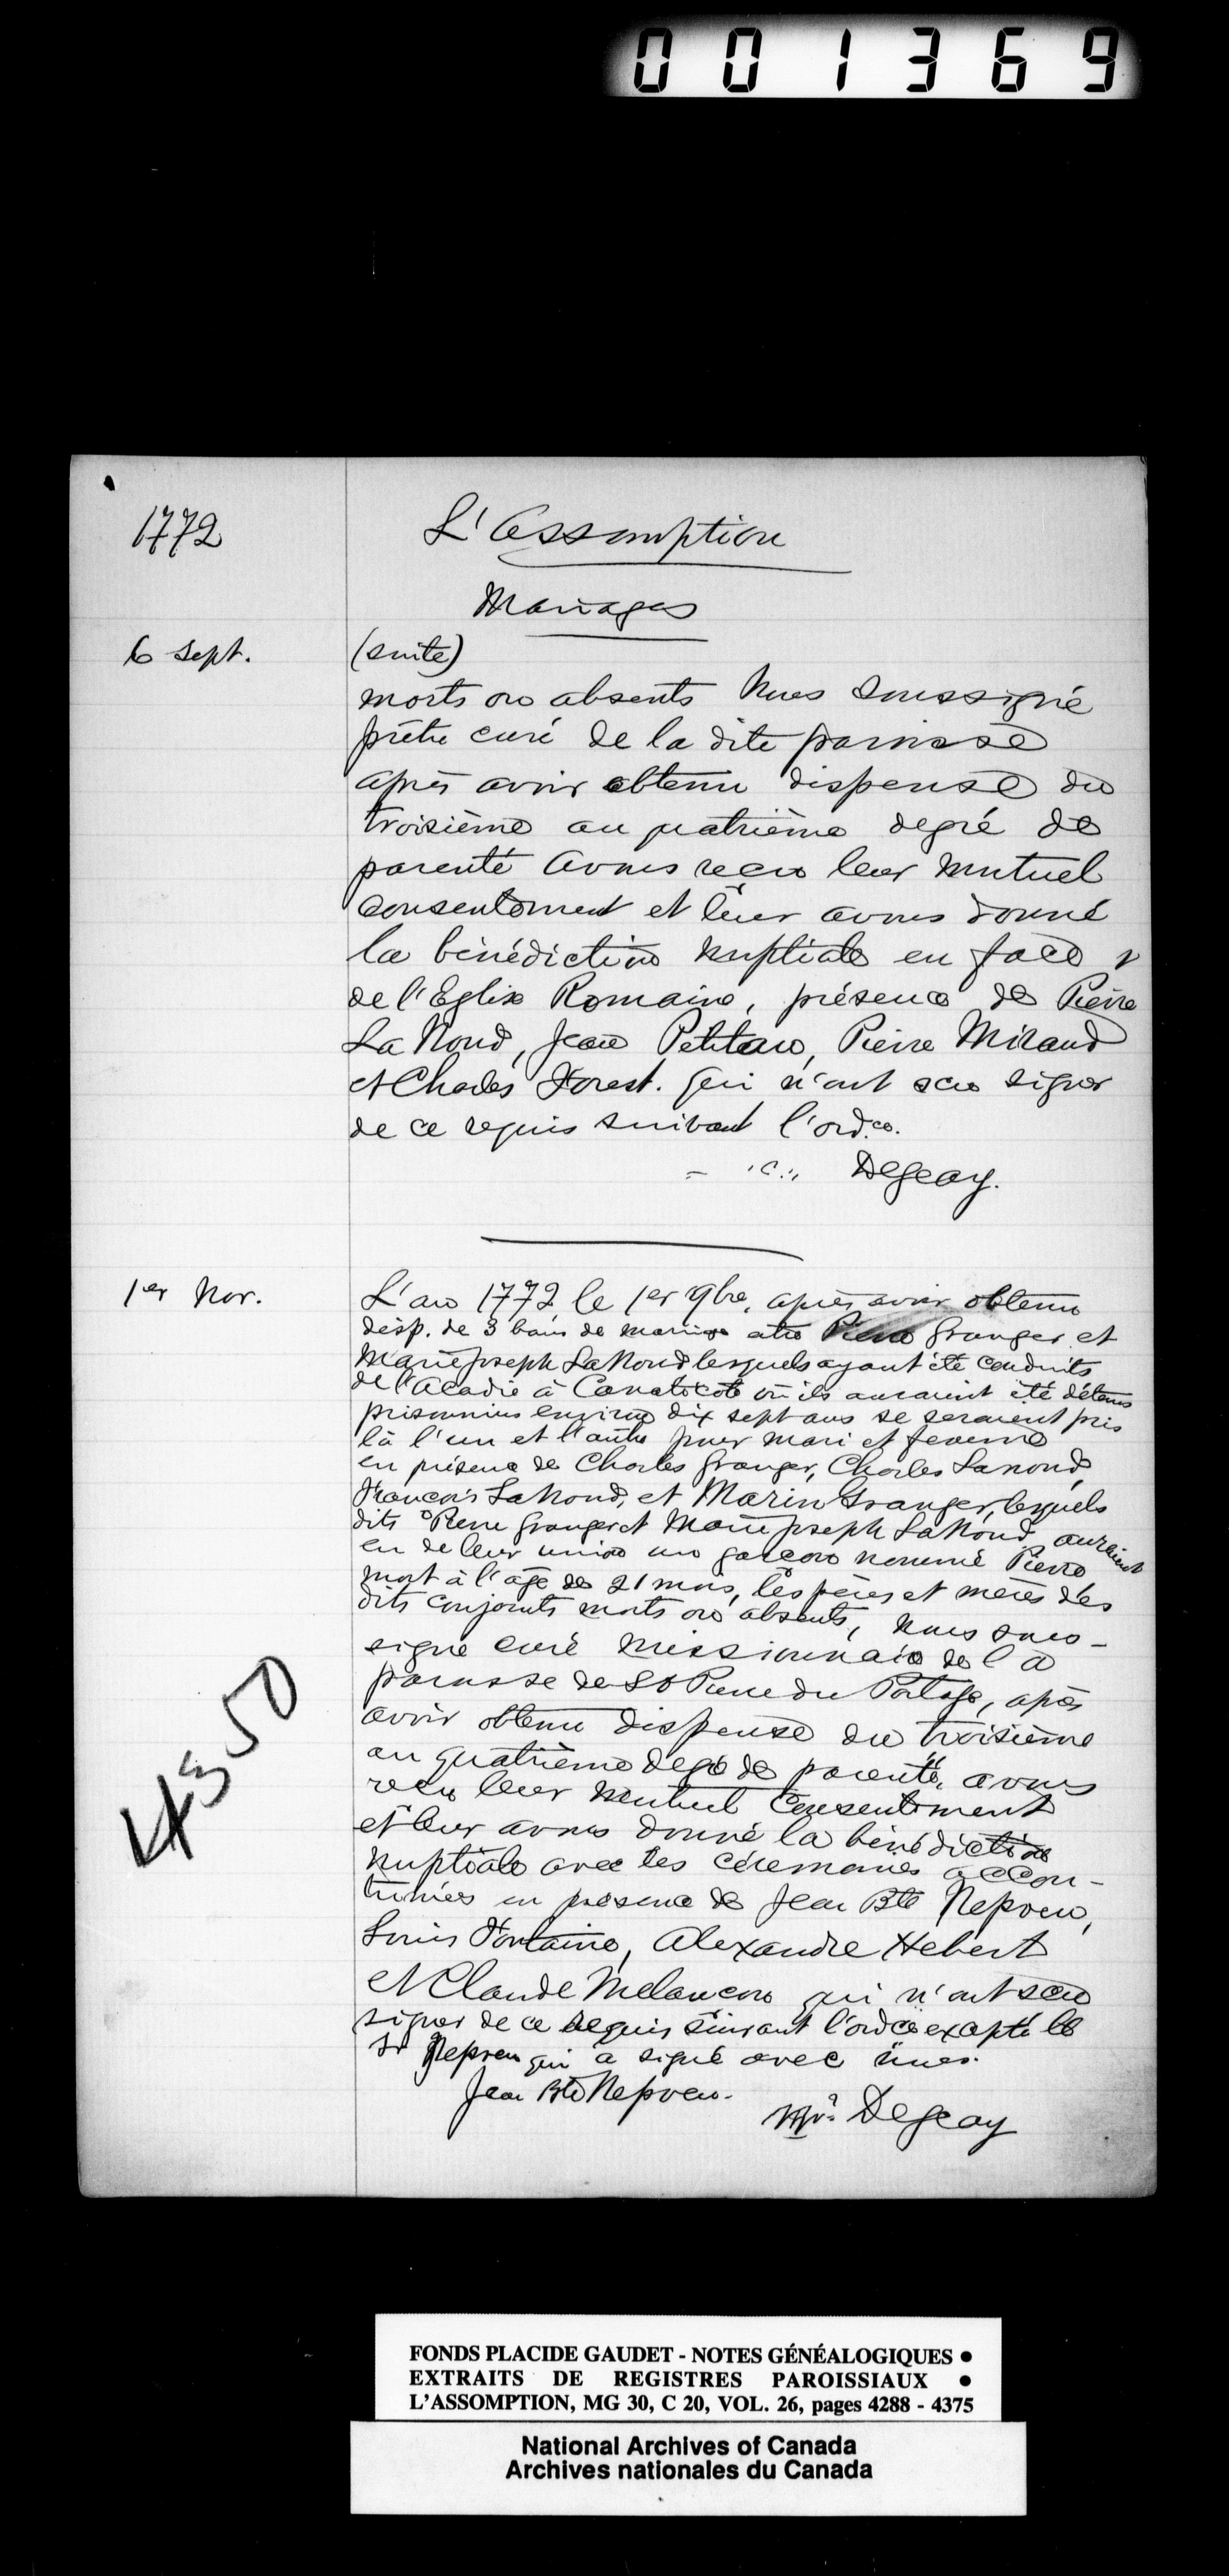 001369
1772
L'Assomption
Mariages
6 sept.
(suite)
morts ou absents Nous soussigné
prêtre curé de la dite paroisse
après avoir obtenu dispense du
troisième au quatrième degré de
parenté avons reçu leur mutuel
consentement et leur avons donné
la bénédiction nuptiale en face
de l'Eglise Romaine, présence de Pierre
La Nond, Jean Petiteau, Pierre Miraud
et Charles Forest. qui n'ont scu signer
de ce requis suivant l'ordce.
Degeay.
1er Nov.
L'an 1772 le 1er 9bre, après avoir obtenu
disp. de 3 bans de mariage entre Pierre Granger et
Marie Joseph LaNond lesquels ayant été conduits
de l'Acadie à Canatocote où ils auraient été détenus
prisonniers environ dix sept ans se seraient pris
là l'un et l'autre pour mari et femme
en présence de Charles Granger, Charles Lanond,
François LaNond, et Marin Granger, lesquels
dits Pierre Granger et Marie Joseph LaNond auraient
eu de leur union un garçon nommé Pierre
mort à l'âge de 21 mois, les pères et mères des
dits conjoints morts ou absents, nous sous-
signé curé missionnaire de la
paroisse de St Pierre du Portage, après
avoir obtenu dispense du troisième
au quatrième degé de parenté, avons
reçu leur mutuel consentement
et leur avons donné la bénédiction
nuptiale avec les cérémonies accou-
tumées en présence de Jean Bte Nepveu,
Louis Fontaine, Alexandre Hebert
et Claude Melancon qui n'ont scu
signer de ce requis suivant l'ordce excepté le
Sr Nepveu qui a signé avec nous.
Jean Bte Nepveu.
Degeay
4350
FONDS PLACIDE GAUDET - NOTES GÉNÉALOGIQUES •
EXTRAITS DE REGISTRES PAROISSIAUX •
L'ASSOMPTION, MG 30, C 20, VOL. 26, pages 4288 - 4375
National Archives of Canada
Archives nationales du Canada